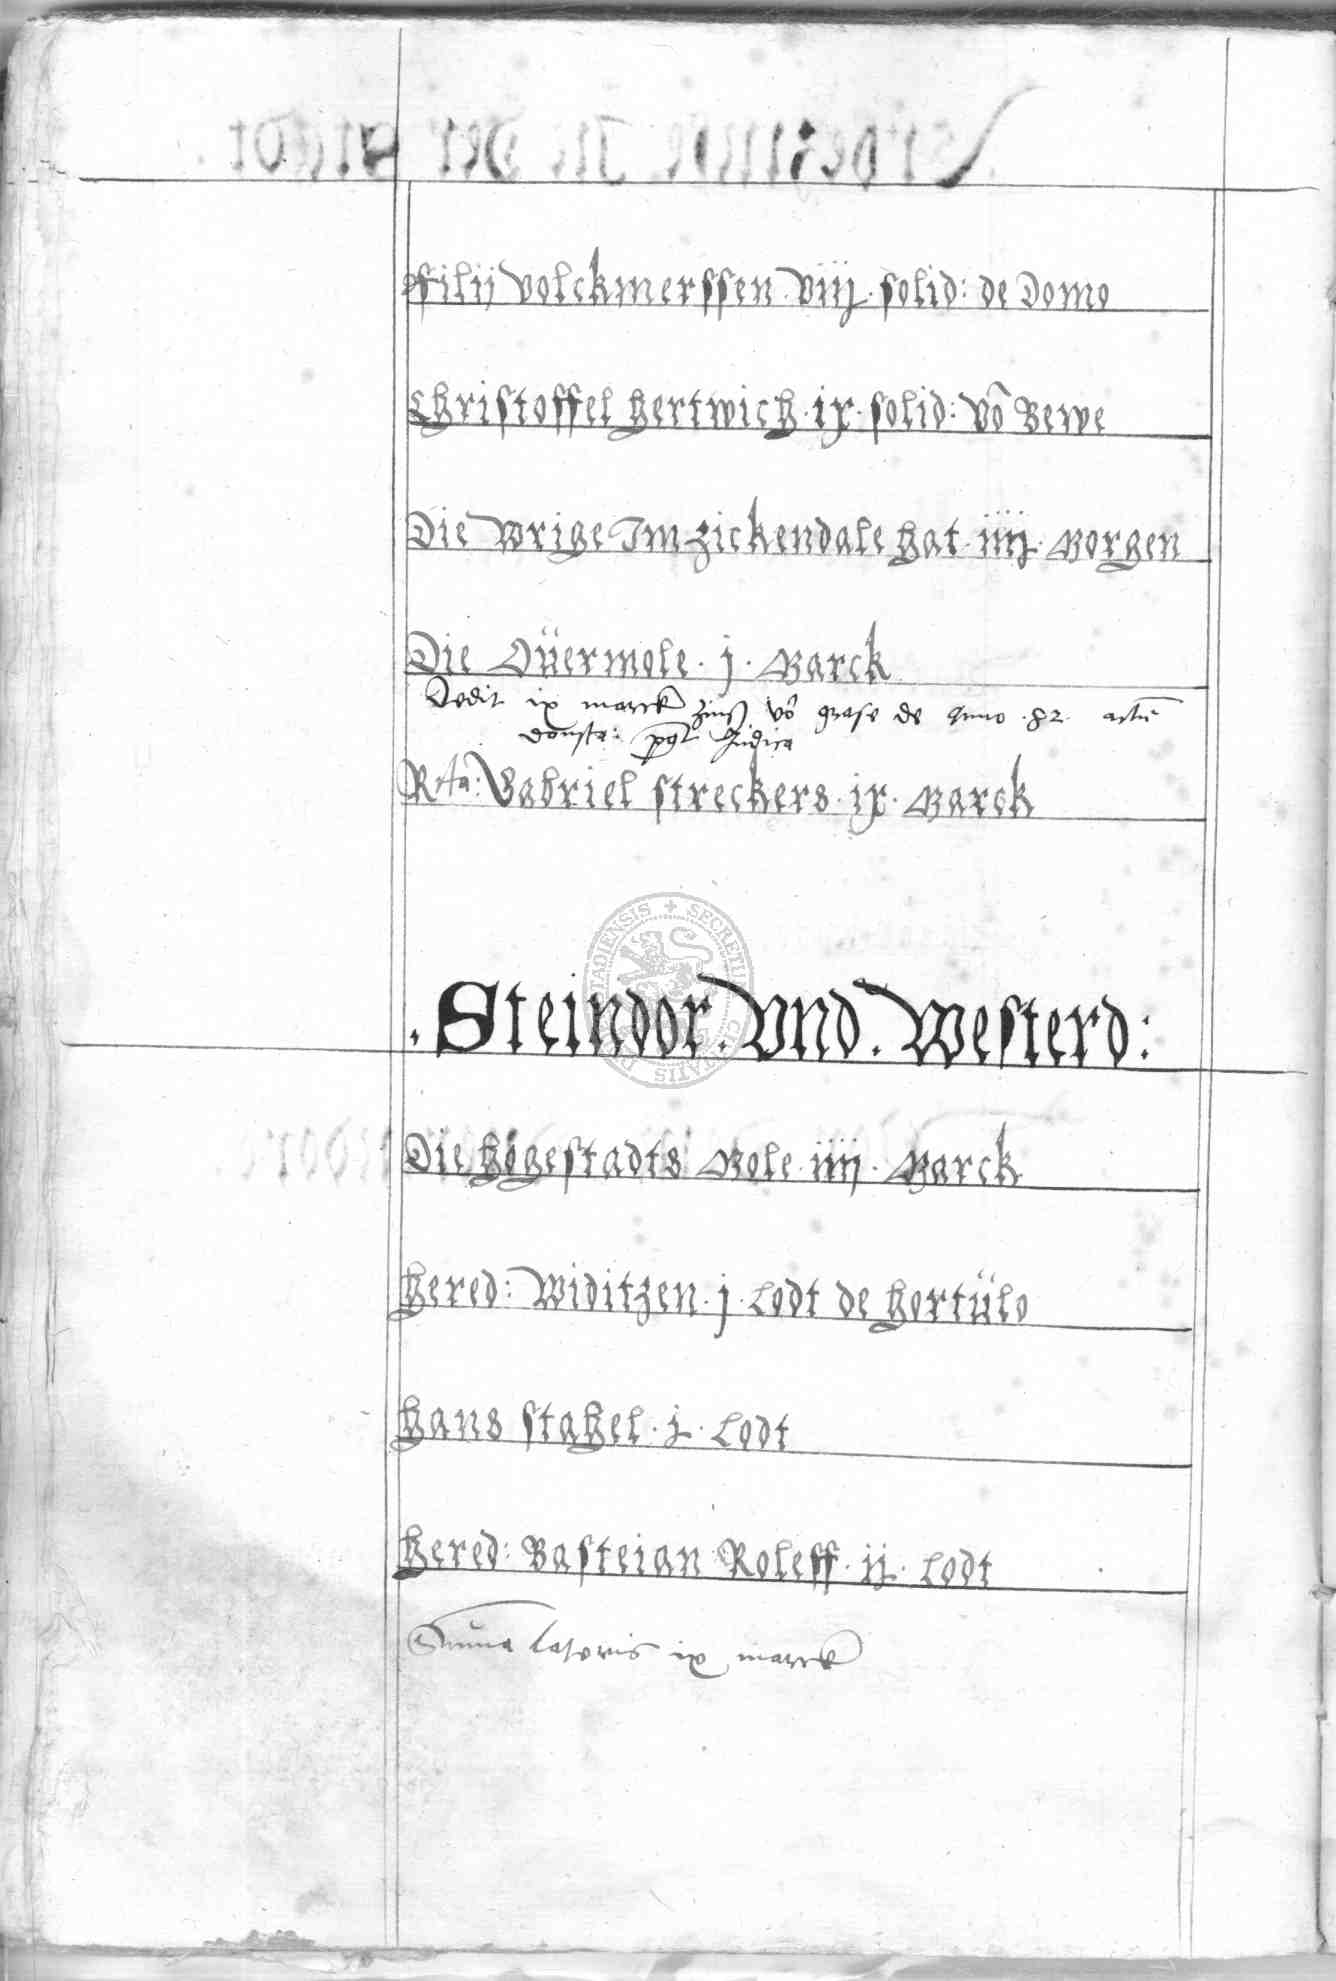 ffilij volckmerssen · viij · solid: de domo
Christoffel hertwich · ix · solid: vō Bewe
Die Wrige Im zickendale hat · iiij · Morgen
Die Oüermole · j · Marck
Dedit ix marck zinß vō grase de Anno · 82 · actū
donrsta: pꝰt Judica
Rta: Gabriel streckers · ix · Marck
· Steindor · Vnd · Westerd:
Die hogestadts Mole · iiij · Marck
hered: Widitzen · j · Lodt de hortülo
hans stahel · j · Lodt
hered: Basteian Roleff · ij · Lodt
Suma lateris ix marck